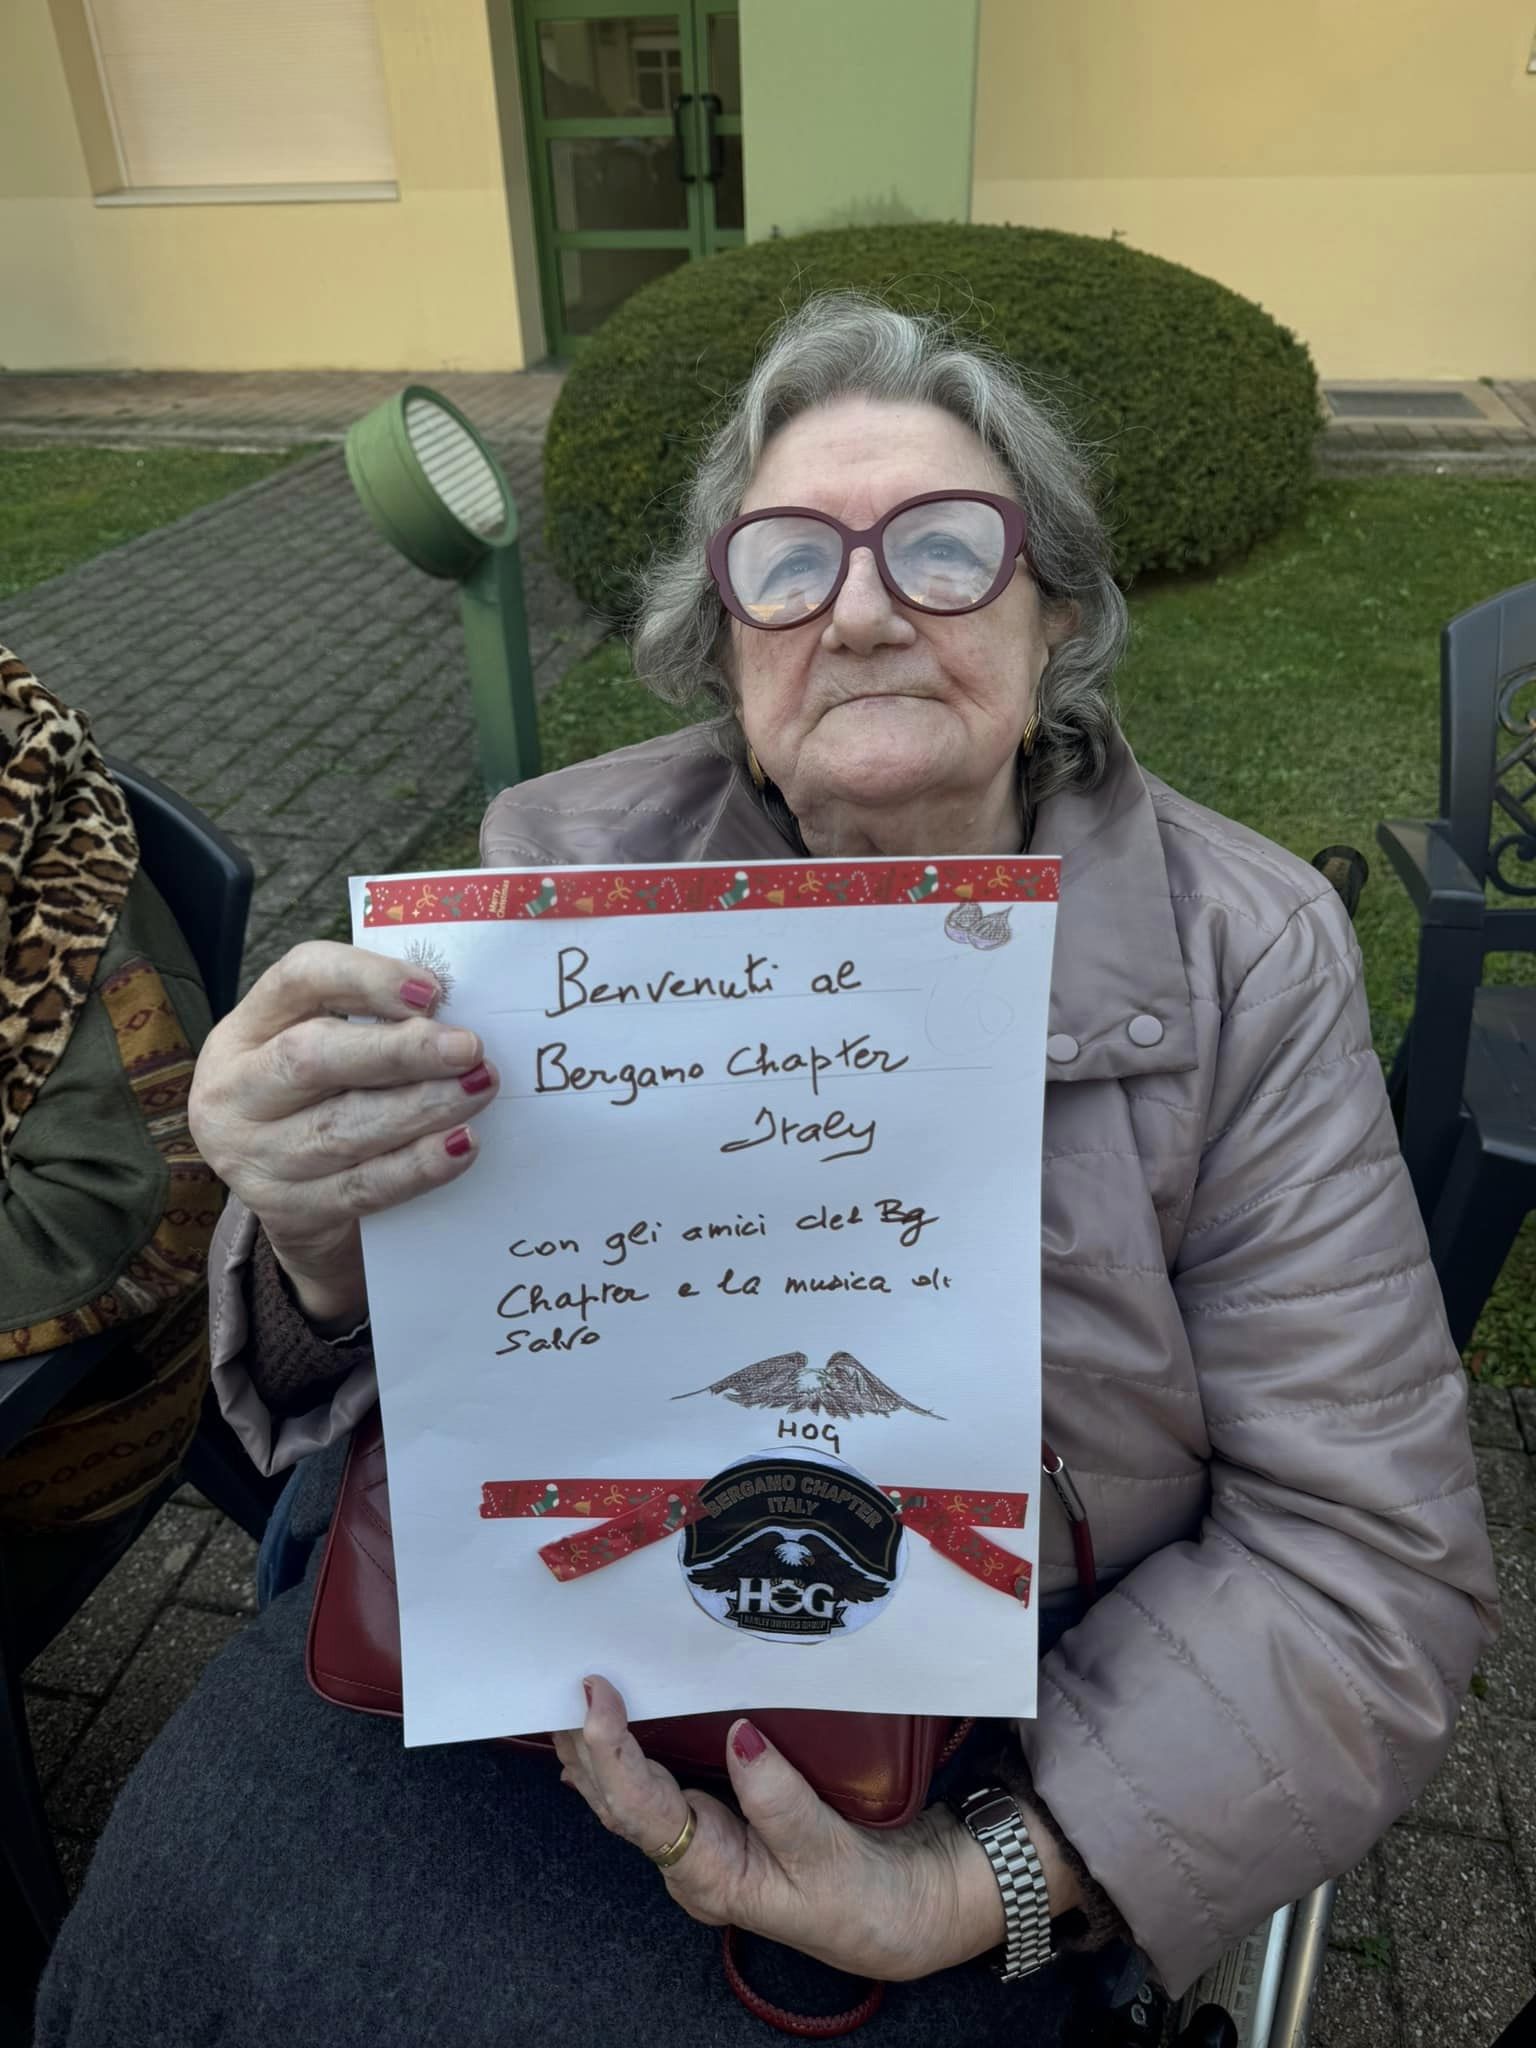 Merry Christmas
Benvenuti al
Bergamo Chapter
Italy
con gli amici del Bg
Chapter e la musica di
Salvo
HOG
BERGAMO CHAPTER
ITALY
HOG
HARLEY OWNERS GROUP